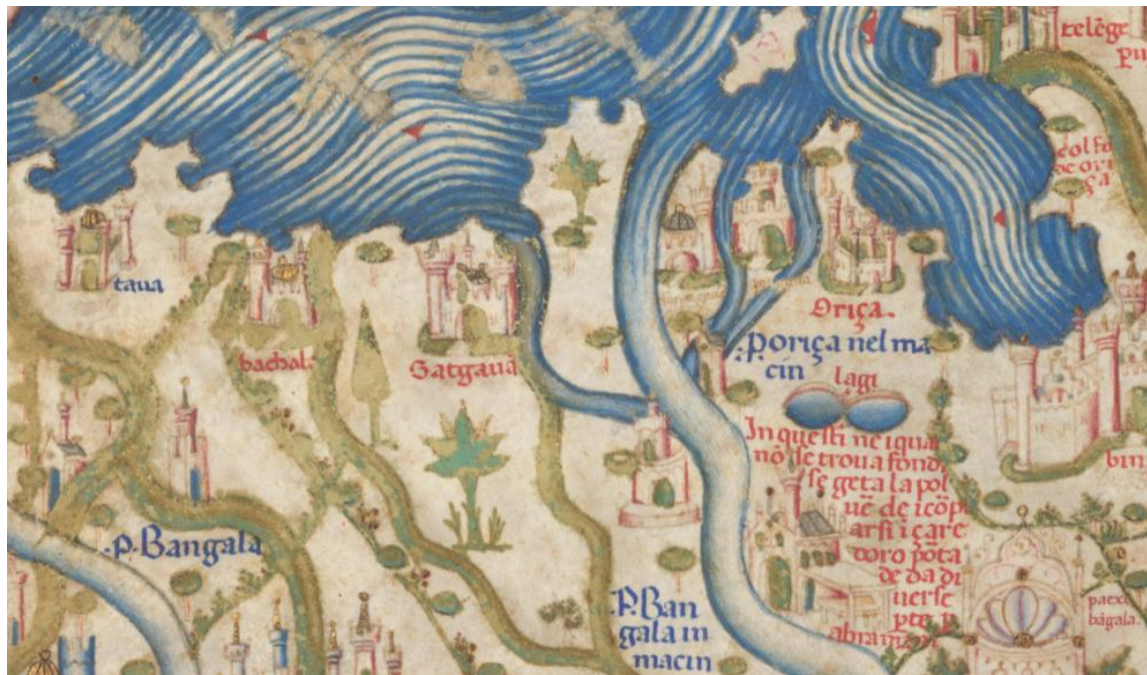 telēge
colfo
de ori
ça
taua
Oriça.
bachal:
Satgauā
:P. oriça nel ma
cin
lagi
In questi ne i qua
nō se troua fond.
se geta la pol
uē de i cōp
arsi i çare
doro pōta
de da di
uerse
pte p
abramini
bin
.P. Bangala
.P. Ban
gala in
macin
paexe
bāgala.